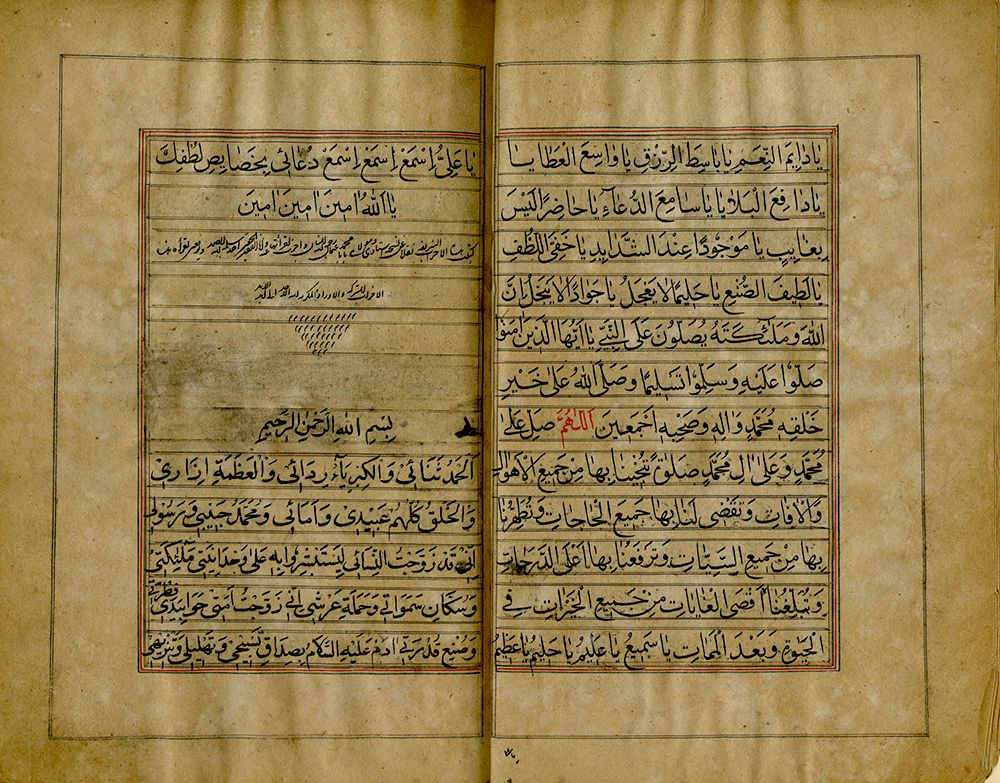 يَا دَايِمَ النِّعَمِ يَا بَاسِطَ الرِّزْقِ يَا وَاسِعَ الْعَطَايَا
يَا دَافِعَ الْبَلَايَا يَا سَامِعَ الدُّعَاءِ يَا حَاضِرًا لَيْسَ
بِغَايِبٍ يَا مَوْجُودًا عِنْدَ الشَّدَايِدِ يَا خَفِيَّ اللُّطْفِ
يَا لَطِيفَ الصُّنْعِ يَا حَلِيمًا لَا يَعْجَلُ يَا جَوَادًا لَا يَبْخَلُ اِنَّ
اللهَ وَمَلٰئِكَتَهُ يُصَلُّونَ عَلَى النَّبِيِّ يَا اَيُّهَا الَّذِينَ اٰمَنُوا
صَلُّوا عَلَيْهِ وَسَلِّمُوا تَسْلِيمًا وَصَلَّى اللهُ عَلٰى خَيْرِ
خَلْقِهِ مُحَمَّدٍ وَاٰلِهِ وَصَحْبِهِ اَجْمَعِينَ اَللّٰهُمَّ صَلِّ عَلٰى
مُحَمَّدٍ وَعَلٰى اٰلِ مُحَمَّدٍ صَلٰوةً تُنْجِينَا بِهَا مِنْ جَمِيعِ الْاَهْوَالِ
وَالْاٰفَاتِ وَتَقْضِى لَنَا بِهَا جَمِيعَ الْحَاجَاتِ وَتُطَهِّرُنَا
بِهَا مِنْ جَمِيعِ السَّيِّئَاتِ وَتَرْفَعُنَا بِهَا اَعْلَى الدَّرَجَاتِ
وَتُبَلِّغُنَا اَقْصَى الْغَايَاتِ مِنْ جَمِيعِ الْخَيْرَاتِ فِي
الْحَيٰوةِ وَبَعْدَ الْمَمَاتِ يَا سَمِيعُ يَا عَلِيمُ يَا حَلِيمُ يَا عَظِيمُ
يَا عَلِيُّ اِسْمَعْ اِسْمَعْ اِسْمَعْ دُعَائِي بِخَصَايِصِ لُطْفِكَ
يَا اَللهُ اٰمِينَ اٰمِينَ اٰمِينَ
بِسْمِ اللهِ الرَّحْمٰنِ الرَّحِيمِ
اَلْحَمْدُ ثَنَائِي وَالْكِبْرِيَاءُ رِدَائِي وَالْعَظَمَةُ اِزَارِي
وَالْخَلْقُ كُلُّهُمْ عَبِيدِي وَاِمَائِي وَمُحَمَّدٌ حَبِيبِي وَرَسُولِي
اِنِّي قَدْ زَوَّجْتُ النِّسَائَ لِيَسْتَبْشِرُوا بِهِ عَلٰى وَحْدَانِيَّتِي مَلٰئِكَتِي
وَسُكَّانَ سَمٰوَاتِي وَحَمَلَةَ عَرْشِي اَنِّي زَوَّجْتُ اَمَتِي حَوَّا بِيَدَيَّ فِطْرَتِي
وَصَنِيعِ قُدْرَتِي اٰدَمَ عَلَيْهِ السَّلَامُ بِصَدَاقِ تَسْبِيحِي وَتَهْلِيلِي وَتَنْزِيهِي